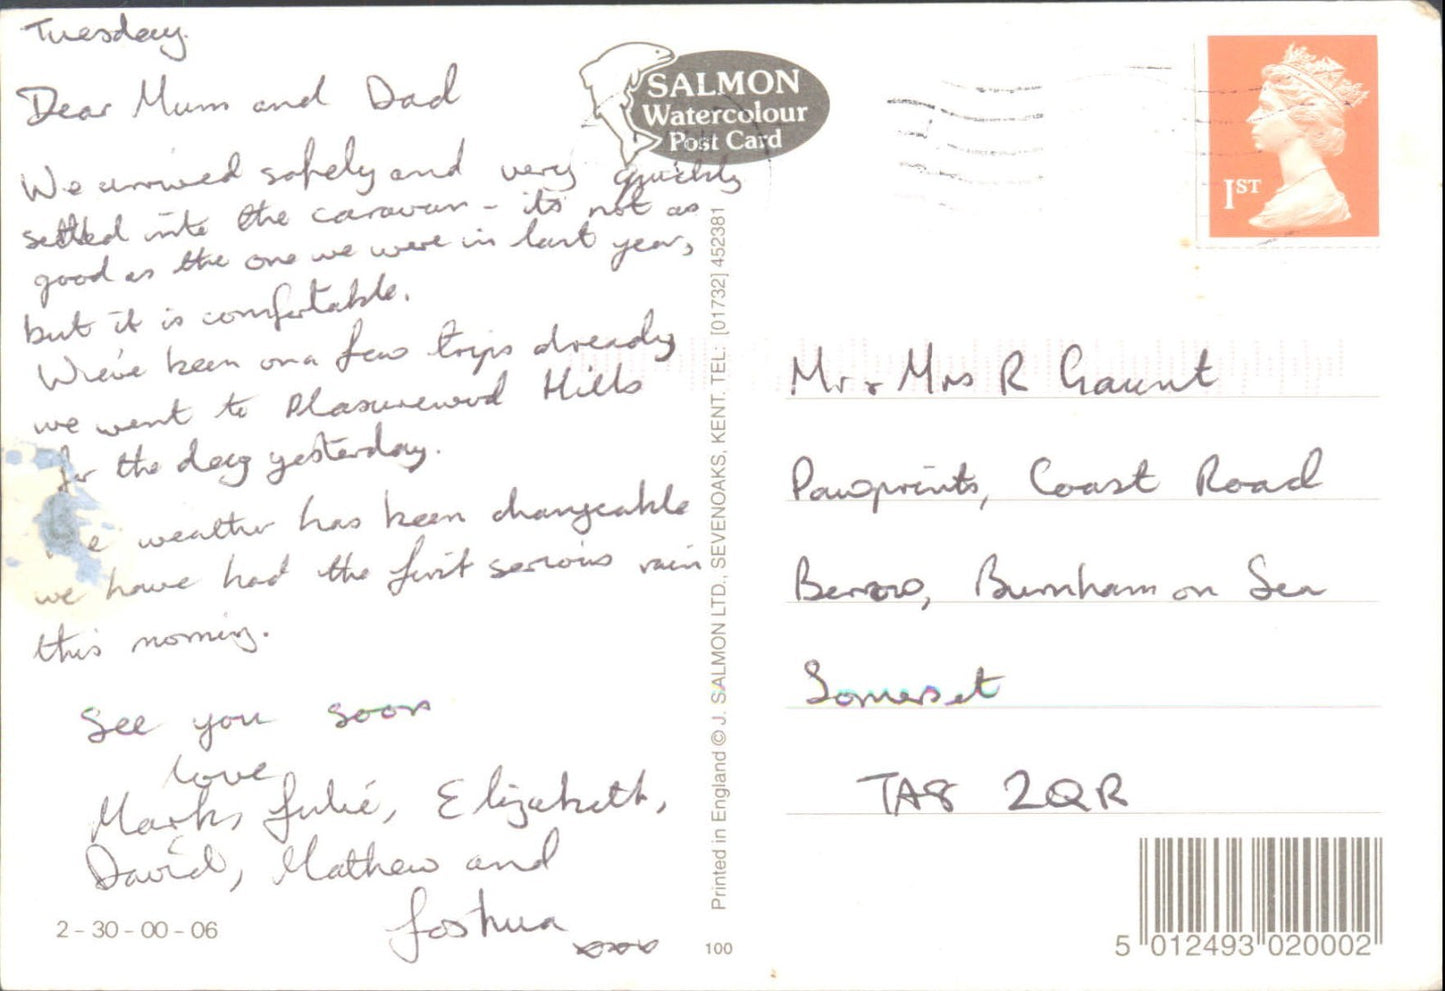 Tuesday.
Dear Mum and Dad
We arrived safely and very quickly
settled into the caravan - its not as
good as the one we were in last year,
but it is comfortable.
We've been on a few trips already
we went to Pleasurewood Hills
for the day yesterday.
The weather has been changeable
we have had the first serious rain
this morning.
See you soon
love
Mark, Julie, Elizabeth,
David, Mathew and
Joshua
xxxx
2-30-00-06
SALMON
Watercolour
Post Card
Printed in England © J. SALMON LTD., SEVENOAKS, KENT. TEL: [01732] 452381
100
1ST
Mr & Mrs R Gaunt
Pawprints, Coast Road
Berrow, Burnham on Sea
Somerset
TA8 2QR
5 012493 020002